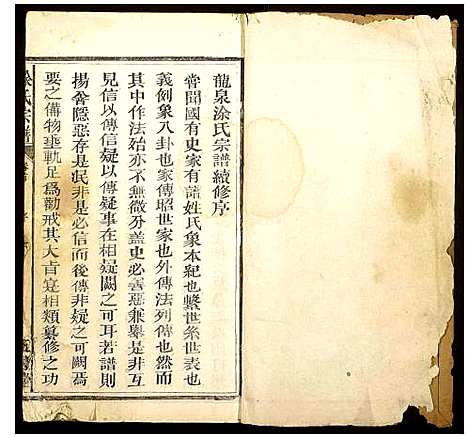 龍泉涂氏宗譜續修序
嘗聞國有史家有譜姓氏象本紀也繫世系世表也
義例象八卦也家傳昭世家也外傳法列傳也然而
其中作法殆亦不無微分蓋史必善惡兼舉是非互
見信以傳信疑以傳疑事在相疑闕之可耳若譜則
揚善隱惡存是泯非是必信而後傳非疑之可闕焉
要之備物垂軌足為勸戒其大旨寔相類纂修之功
氏宗譜